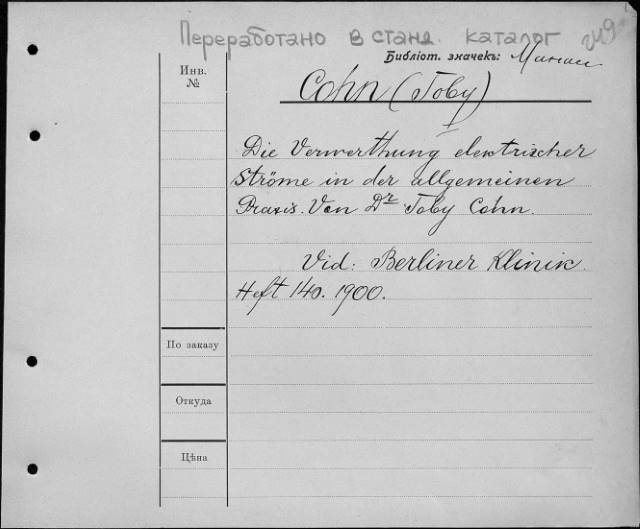 Переработано в станд. каталог
Библіот. значекъ:
Инв.
№
Cohn (Toby)
I
Die Verwerthung elektrischer
Ströme in der allgemeinen
Praxis. Von Dr Toby Cohn.
Vid: Berliner Klinik.
Heft 140. 1900.
По заказу
Откуда
Цѣна